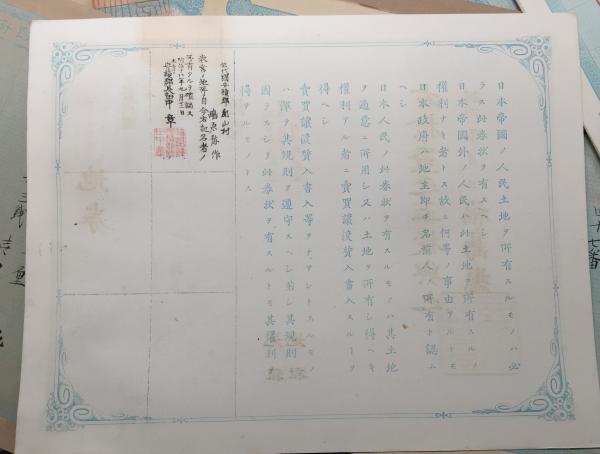 日本帝國ノ人民土地ヲ所有スルモノハ必
ラス此券狀ヲ有スヘシ
日本帝國外ノ人民ハ此土地ヲ所有スルノ
權利ナキ者トス故ニ何等ノ事由アルトモ
日本政府ハ地主即チ名前人ノ所有ト認ム
ヘシ
日本人民ノ此券狀ヲ有スルモノハ其土地
ヲ適意ニ所用シ又ハ土地ヲ所有シ得ヘキ
權利アル者ニ賣買讓渡質入書入スルヿヲ
得ヘシ
賣買讓渡質入書入等ヲナサントスルモノ
ハ渾テ其規則ヲ遵守スヘシ若シ其規則
ニ因ラスシテ此券狀ヲ有スルトモ其權利ヲ
得サルモノトス
郡山村
表書ノ地所自今右記名者ノ
所有タルヲ確認ス
明治十八年九月三日
章
地券
四十七番